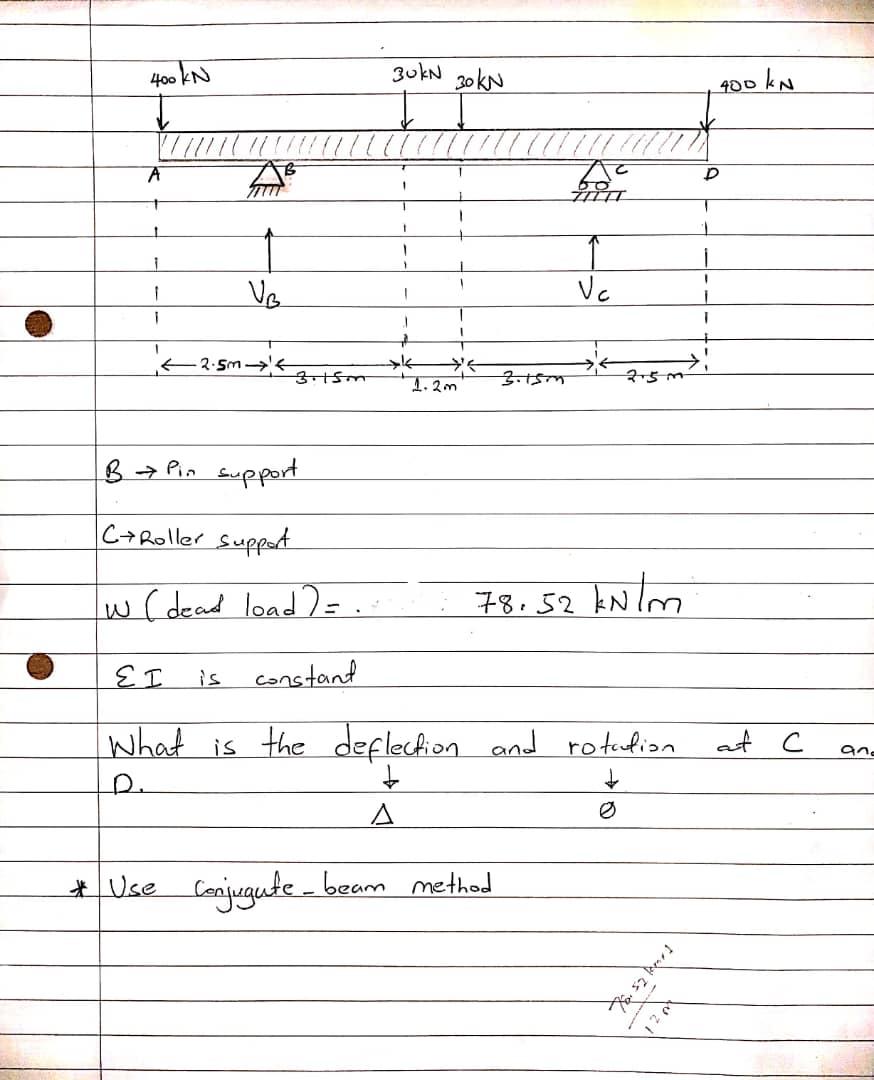 400 kN 30kN 30kN 400 kN
A B C D
VB Vc
2.5m 3.15m 1.2m 3.15m 2.5m
B → Pin support
C → Roller support
W (dead load) = . 78.52 kN/m
EI is constant
What is the deflection and rotation at C an
D. ↓ ↓
Δ Ø
* Use Conjugate-beam method
12m